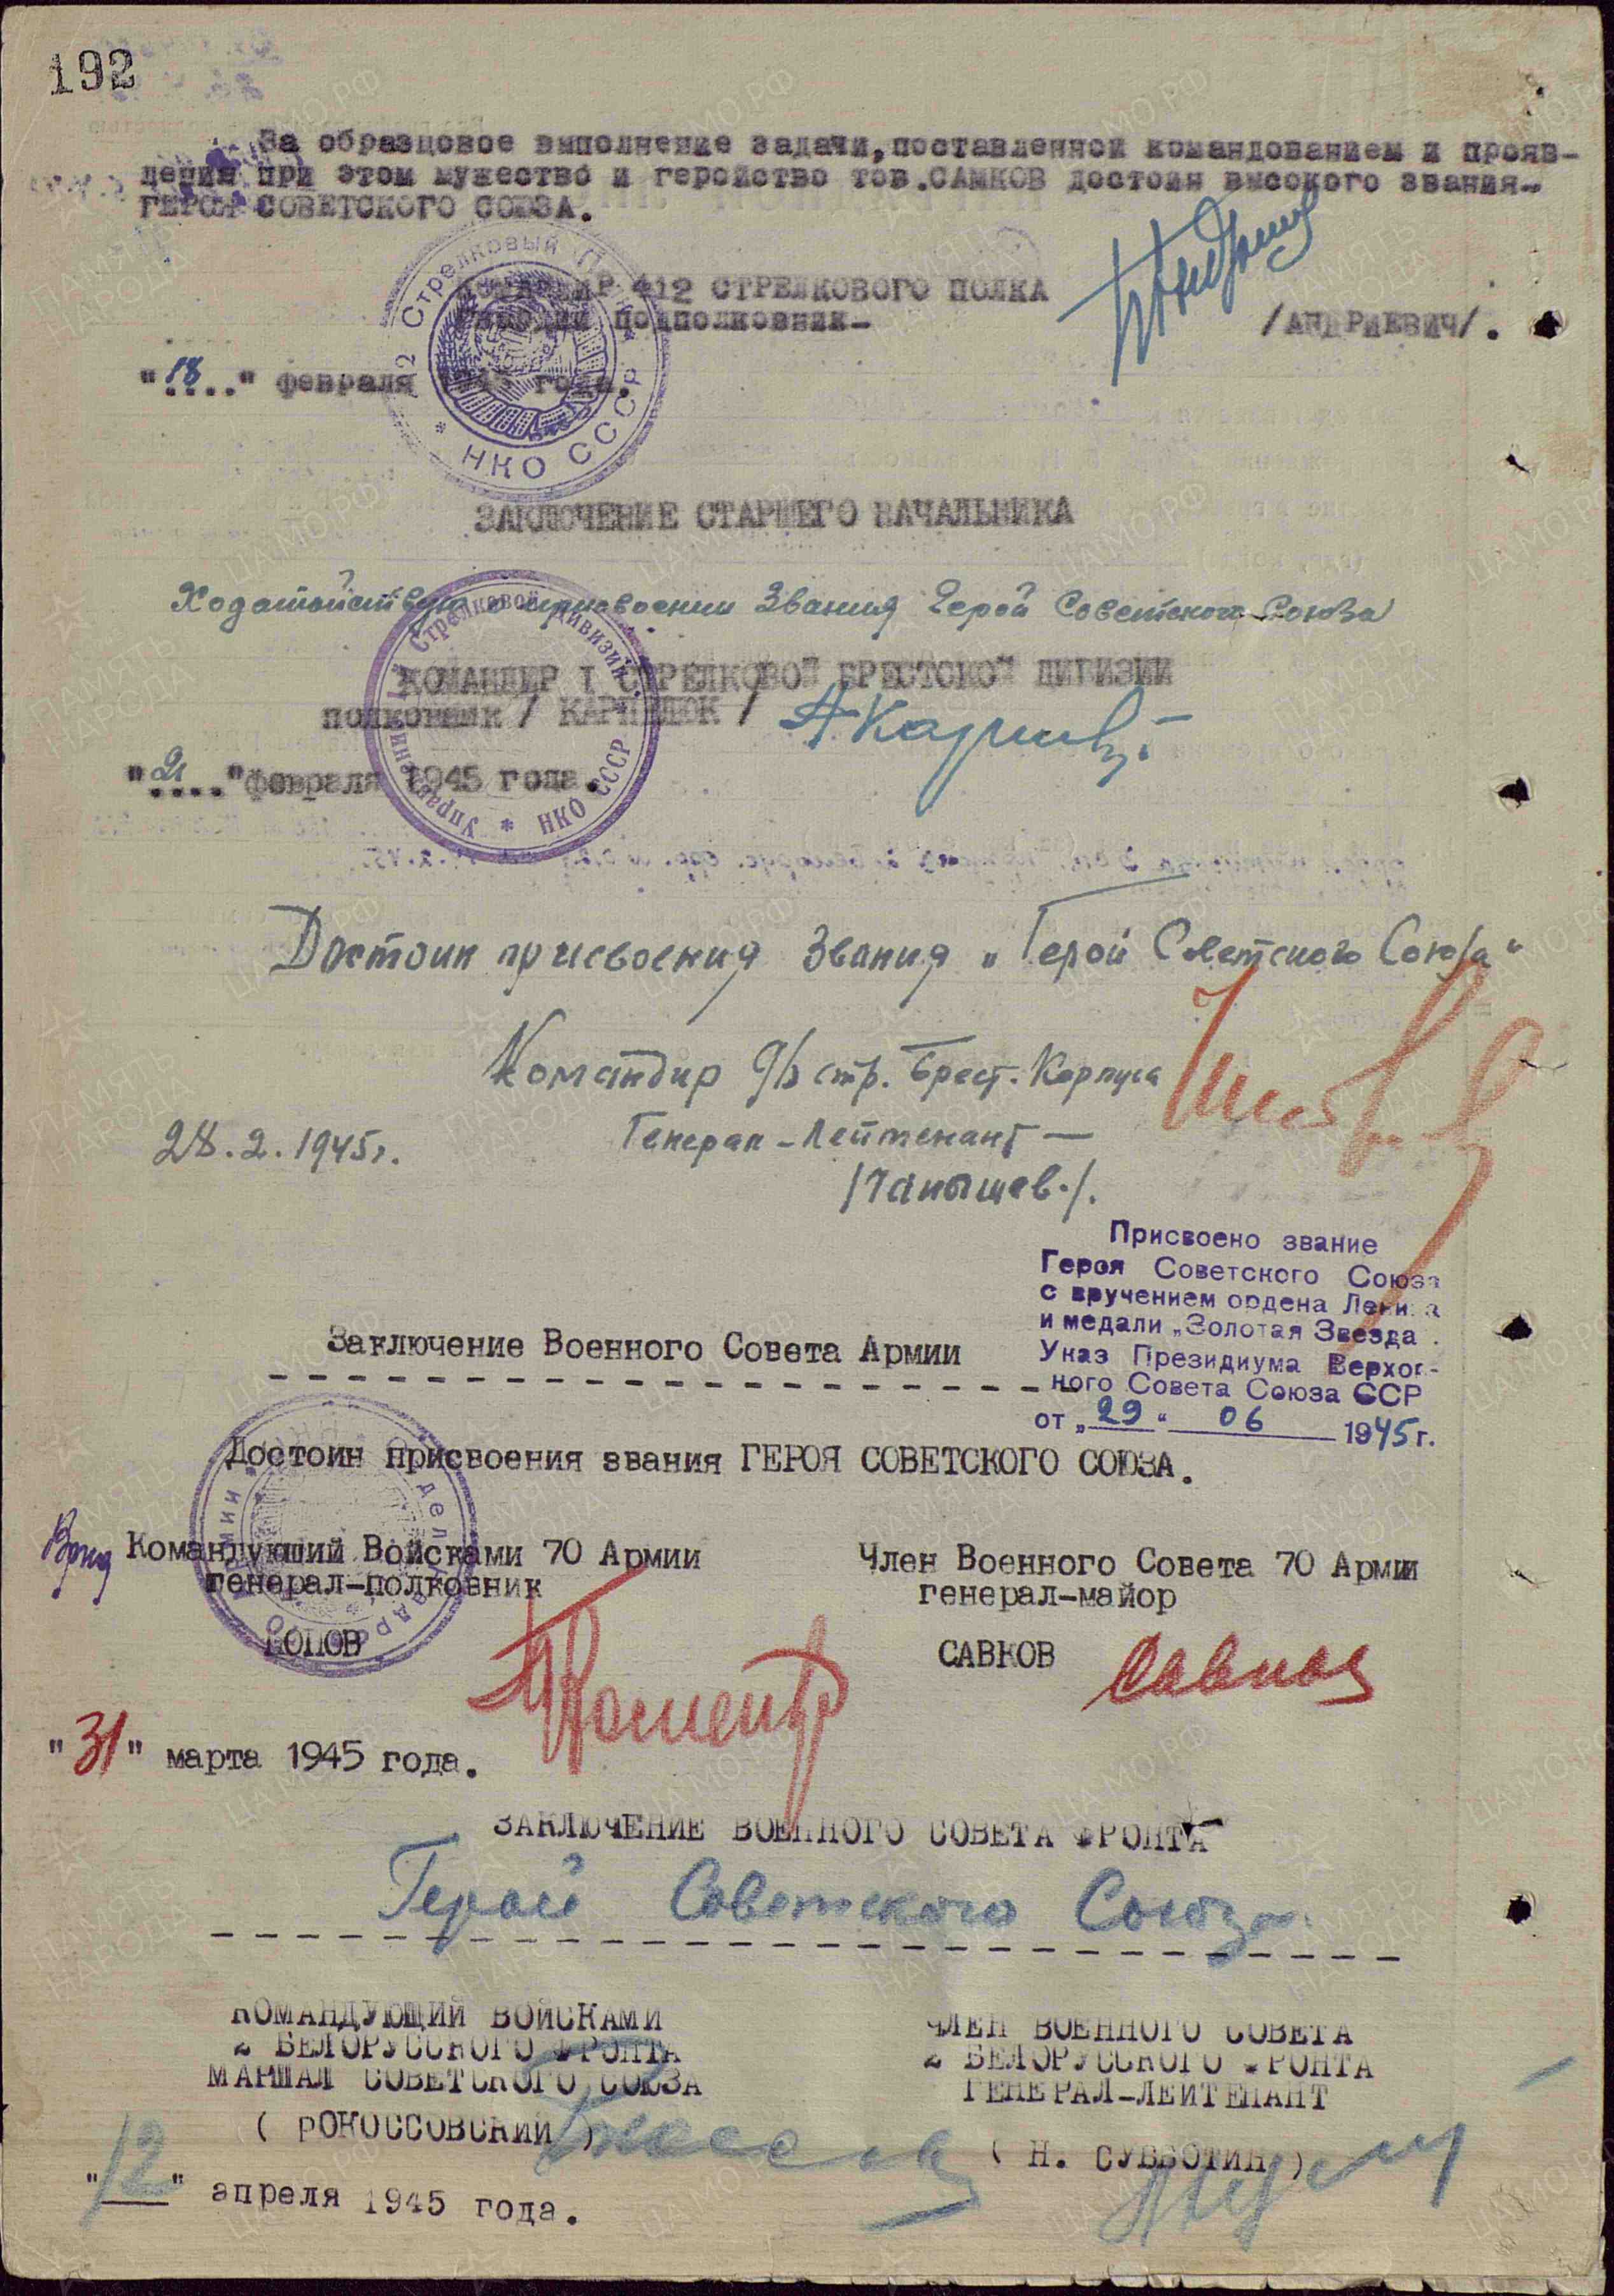 192
За образцовое выполнение задачи, поставленной командованием и прояв-
ления при этом мужество и геройство тов. САМКОВ достоин высокого звания-
ГЕРОЯ СОВЕТСКОГО СОЮЗА.
КОМАНДИР 412 СТРЕЛКОВОГО ПОЛКА
подполковник-
/АНДРИЕВИЧ/.
"18" февраля 1945 года.
Стрелковый
НКО СССР
ЗАКЛЮЧЕНИЕ СТАРШЕГО НАЧАЛЬНИКА
Ходатайствую о присвоении Звания Герой Советского Союза
КОМАНДИР I СТРЕЛКОВОЙ БРЕСТСКОЙ ДИВИЗИИ
полковник / КАРПЛЮК /
"21" февраля 1945 года.
Управление Стрелковой дивизии
НКО СССР
Достоин присвоения Звания „Герой Советского Союза“
Командир 96 стр. Брест. Корпуса
Генерал-Лейтенант —
28.2.1945г.
/Чанышев./.
Присвоено звание
Героя Советского Союза
с вручением ордена Ленина
и медали „Золотая Звезда".
Указ Президиума Верхов-
ного Совета Союза ССР
от „29“ 06 1945 г.
Заключение Военного Совета Армии
Достоин присвоения звания ГЕРОЯ СОВЕТСКОГО СОЮЗА.
Врид Командующий Войсками 70 Армии
генерал-полковник
ПОПОВ
Член Военного Совета 70 Армии
генерал-майор
САВКОВ Савков
"31" марта 1945 года.
ЗАКЛЮЧЕНИЕ ВОЕННОГО СОВЕТА ФРОНТА
Герой Советского Союза.
КОМАНДУЮЩИЙ ВОЙСКАМИ
2 БЕЛОРУССКОГО ФРОНТА
МАРШАЛ СОВЕТСКОГО СОЮЗА
( РОКОССОВСКИЙ )
ЧЛЕН ВОЕННОГО СОВЕТА
2 БЕЛОРУССКОГО ФРОНТА
ГЕНЕРАЛ-ЛЕЙТЕНАНТ
( Н. СУББОТИН )
"12" апреля 1945 года.
ПАМЯТЬ НАРОДА
ЦАМО.РФ